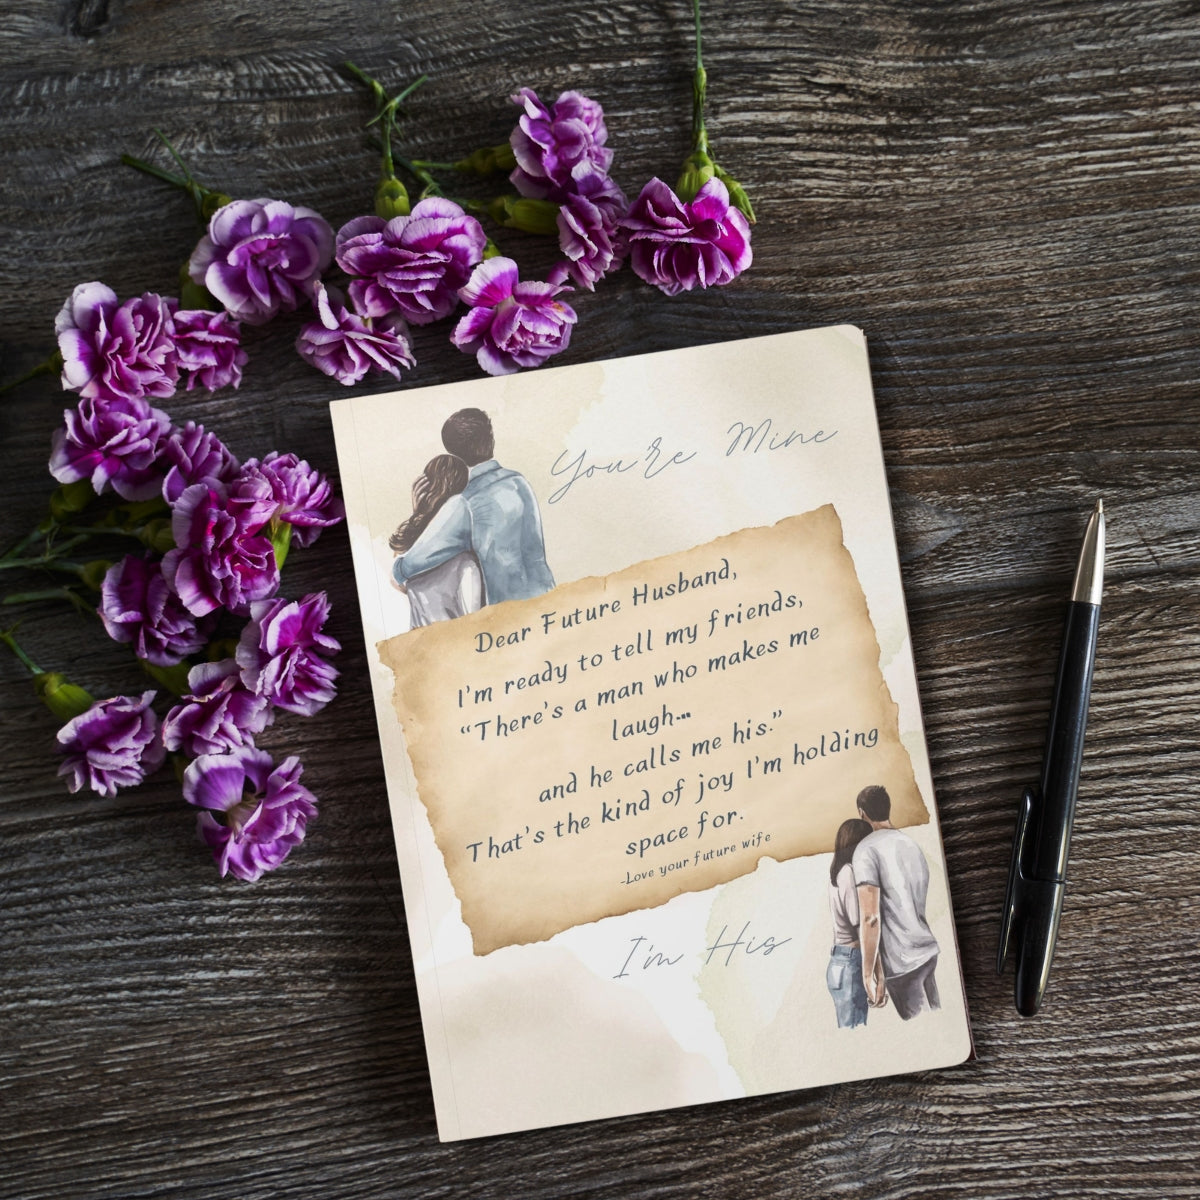 You're Mine
Dear Future Husband,
I'm ready to tell my friends,
“There's a man who makes me
laugh...
and he calls me his.”
That's the kind of joy I'm holding
space for.
-Love your future wife
I'm His